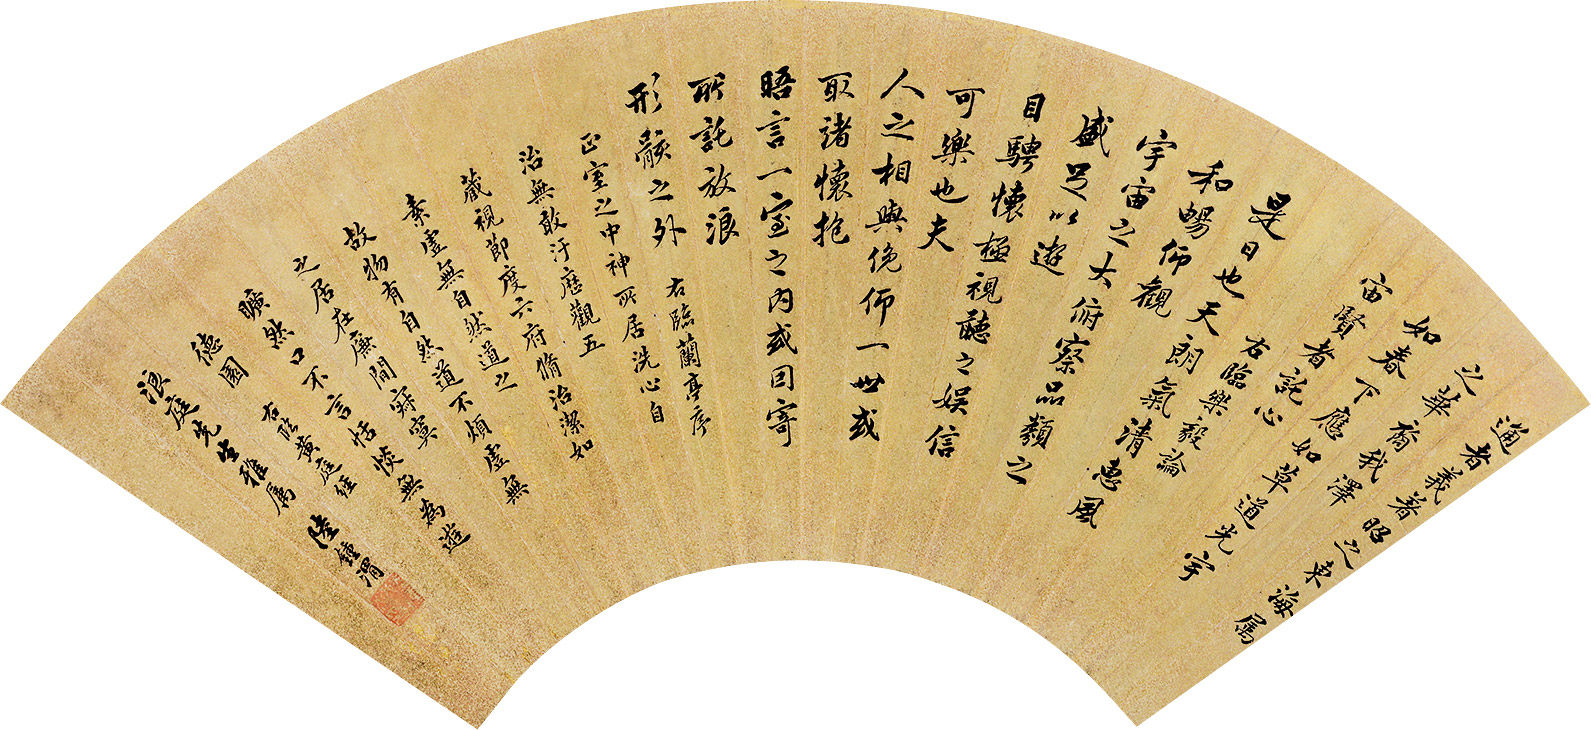 通者義著昭之東海属
之華裔我澤
如春下應如草道光宇
宙賢者託心
右臨樂毅論
是日也天朗氣清惠風
和暢仰觀
宇宙之大俯察品類之
盛足以遊
目騁懷極視聽之娛信
可樂也夫
人之相與俛仰一世或
取諸懷抱
晤言一室之内或因寄
所託放浪
形骸之外
右臨蘭亭序
正室之中神所居洗心自
治無敢汙歷觀五
藏視節度六府脩治潔如
素虛無自然道之
故物有自然道不煩虛無
之居在廉間寂寞
曠然口不言恬惔無為遊
德園
右臨黃庭經
浪庭先生雅属
陸鍾渭